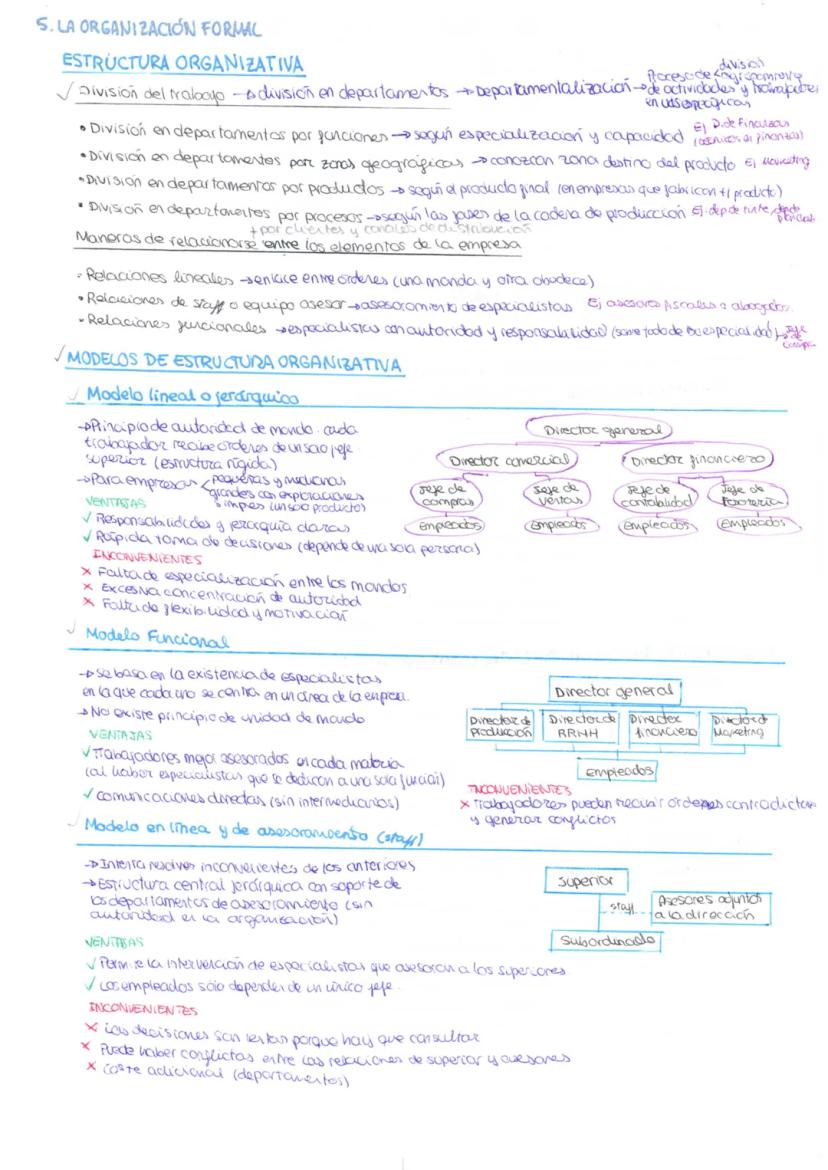 5. LA ORGANIZACIÓN FORMAL
ESTRUCTURA ORGANIZATIVA
división
Proceso de < agrupamiento
✓ División del trabajo → división en departamentos → Departamentalización → de actividades y trabajadores
en uds específicas
• División en departamentos por funciones → según especialización y capacidad Ej D. de Finanzas
(técnicos en finanzas)
• División en departamentos por zonas geográficas → conozcan zona destino del producto Ej Marketing
• División en departamentos por productos → según el producto final (en empresas que fabrican +1 producto)
• División en departamentos por procesos → según las fases de la cadena de producción Ej. dep de tinte,
+ por clientes y canales de distribución
Maneras de relacionarse entre los elementos de la empresa
• Relaciones lineales → enlace entre órdenes (una manda y otra obedece)
• Relaciones de staff o equipo asesor → asesoramiento de especialistas Ej asesores fiscales o abogados.
• Relaciones funcionales → especialistas con autoridad y responsabilidad (sobre todo de su especialidad)
✓ MODELOS DE ESTRUCTURA ORGANIZATIVA
✓ Modelo lineal o jerárquico
→ Principio de autoridad de mando. cada
trabajador recibe órdenes de un solo jefe
superior (estructura rígida)
→ Para empresas < pequeñas y medianas
grandes con explotaciones
simples (un solo producto)
VENTAJAS
✓ Responsabilidades y jerarquía claras
✓ Rápida toma de decisiones (depende de una sola persona)
INCONVENIENTES
× Falta de especialización entre los mandos
× Excesiva concentración de autoridad
× Falta de flexibilidad y motivación
Director general
Director comercial Director financiero
Jefe de compras Jefe de ventas Jefe de contabilidad Jefe de Tesorería
Empleados Empleados Empleados Empleados
✓ Modelo Funcional
→ se basa en la existencia de especialistas
en la que cada uno se centra en un área de la empresa.
→ No existe principio de unidad de mando
VENTAJAS
✓ Trabajadores mejor asesorados en cada materia
(al haber especialistas que se dedican a una sola función)
✓ comunicaciones directas (sin intermediarios)
Director general
Director de Producción Director de RRHH Director financiero Director de Marketing
Empleados
INCONVENIENTES
× Trabajadores pueden recibir órdenes contradictorias
y generar conflictos
✓ Modelo en línea y de asesoramiento (staff)
→ Intenta resolver inconvenientes de los anteriores
→ Estructura central jerárquica con soporte de
los departamentos de asesoramiento (sin
autoridad en la organización)
VENTAJAS
✓ Permite la intervención de especialistas que asesoran a los superiores
✓ Los empleados sólo dependen de un único jefe.
INCONVENIENTES
× Las decisiones son lentas porque hay que consultar
× Puede haber conflictos entre las relaciones de superior y asesores
× Coste adicional (departamentos)
Superior
staff
Asesores adjuntos
a la dirección
Subordinado